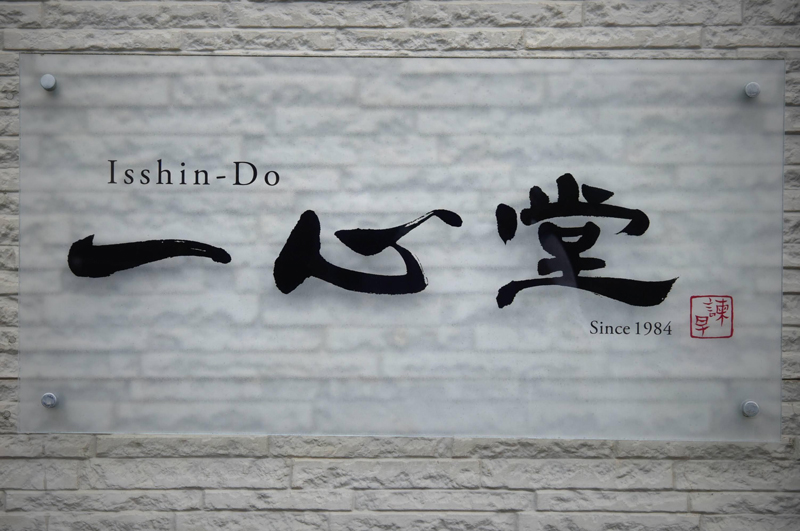 Isshin-Do
一心堂
Since 1984
諫早